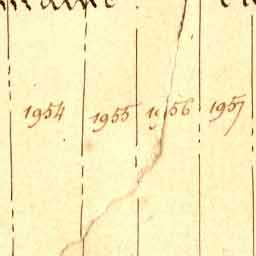 1954 1955 1956 1957